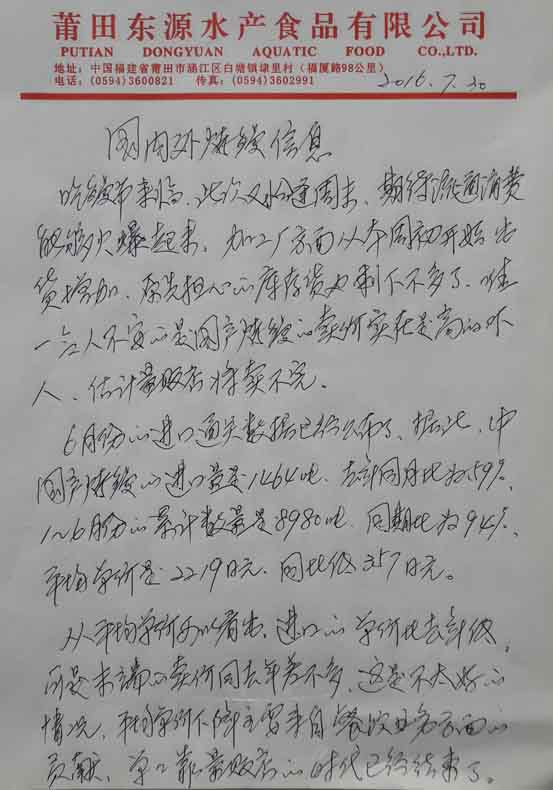 莆田东源水产食品有限公司
PUTIAN DONGYUAN AQUATIC FOOD CO.,LTD.
地址：中国福建省莆田市涵江区白塘镇埭里村（福厦路98公里）
电话：(0594)3600821 传真：(0594)3602991
2016.7.30
国内外烤鳗信息
吃鳗节来临、此次又恰逢周末、期待流通消费
能够火爆起来。加工厂方面从本周初开始出
货增加、原先担心的库存货也剩下不多了、唯
一令人不安的是国产烤鳗的卖价实在是高的吓
人、估计量贩店将卖不完。
6月份的进口通关数据已经公布了、据此、中
国产烤鳗的进口量是1464吨、去年同月比为59%、
1~6月份的累计数量是8980吨、同期比为94%、
平均单价是2219日元、同比低357日元。
从平均单价可以看出、进口的单价比去年低、
可是末端的卖价同去年差不多、这是不太好的
情况、平均单价下降主要来自餐饮业务方面的
贡献、单靠量贩店的时代已经结束了。